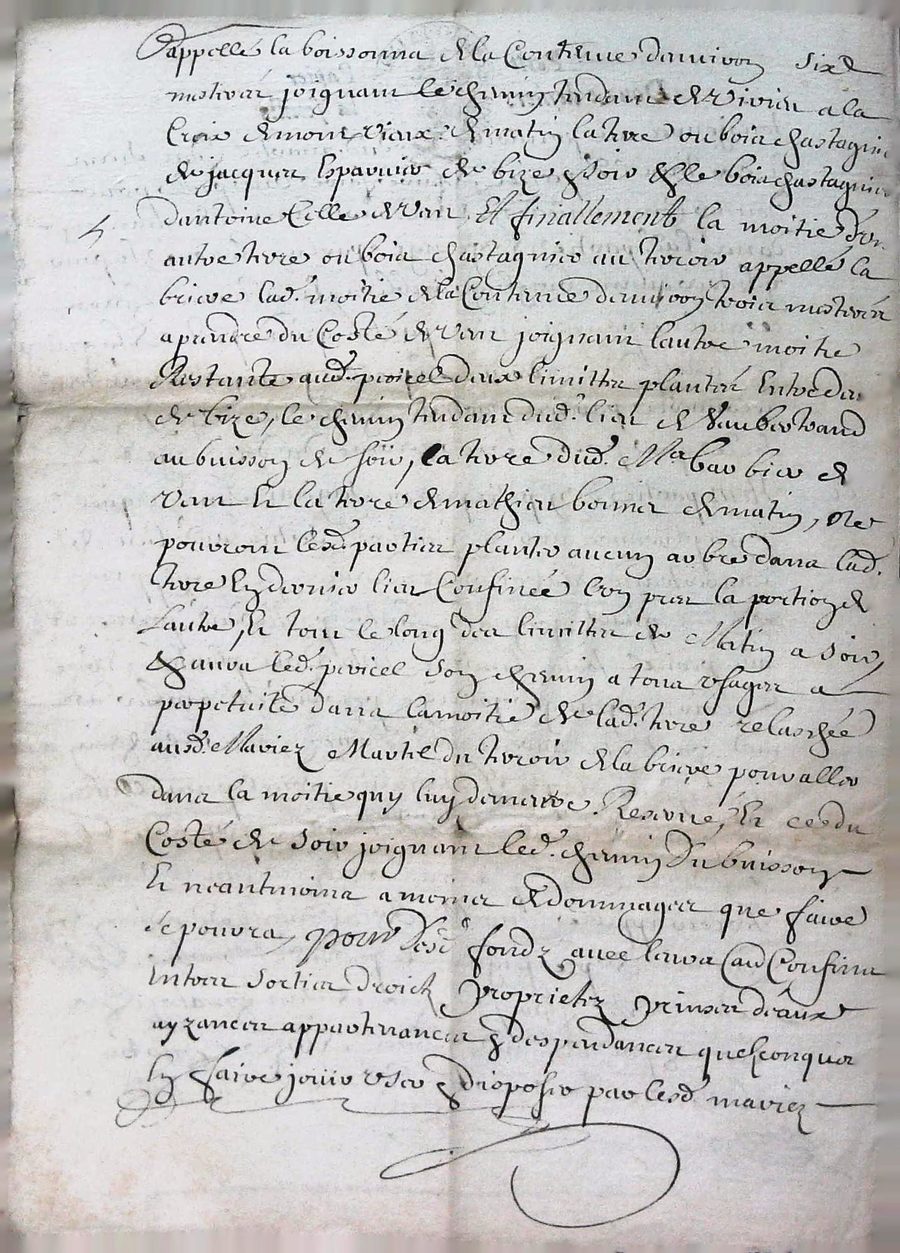 appellé la boissonna de la Contenue denviron six
mestrées joignant le chemin tendant de vivier a la
Croix de mont vieux de matin la terre ou bois chastagnier
de jacques de bize & soir & le bois chastagnier
dantoine Celle de vent. Et finallement la moitié d'un
autre terre ou bois chastagnier au terroir appellé la
brieve lad. moitié de la Contenue denviron trois mestrées
a prendre du Costé de vent joignant lautre moitié
Restante aud. poicel deux limittes plantées Entredeux
de bize, le chemin tendant dud. lieu de Vaubertrand
au buisson de soir, la terre dud. Mr barbier de
vent Et la terre de mathieu bonnet de matin, Ne
pourront lesd. parties planter aucun arbre dans lad.
terre En dernier lieu Confinée lon pres la portion de
Lautre, Et tout le long des limittes de Matin a soir,
& aura led. poicel son chemin a tous usages a
perpetuité dans la moitié de lad. terre relaschée
ausd. Mariez Martel du terroir de la brieve pour aller
dans la moitié quy luy demeure Reservée, Et ce du
Costé de soir joignant led. chemin du buisson
Et neantmoins a moines de dommages que faire
se pourra, pour lesd. fondz avec leurs Confins
Entrées sorties droictz proprietez prinses deaux
ayzances appartenances & despendances quelconques
En faire jouir user & disposer par lesd. mariez